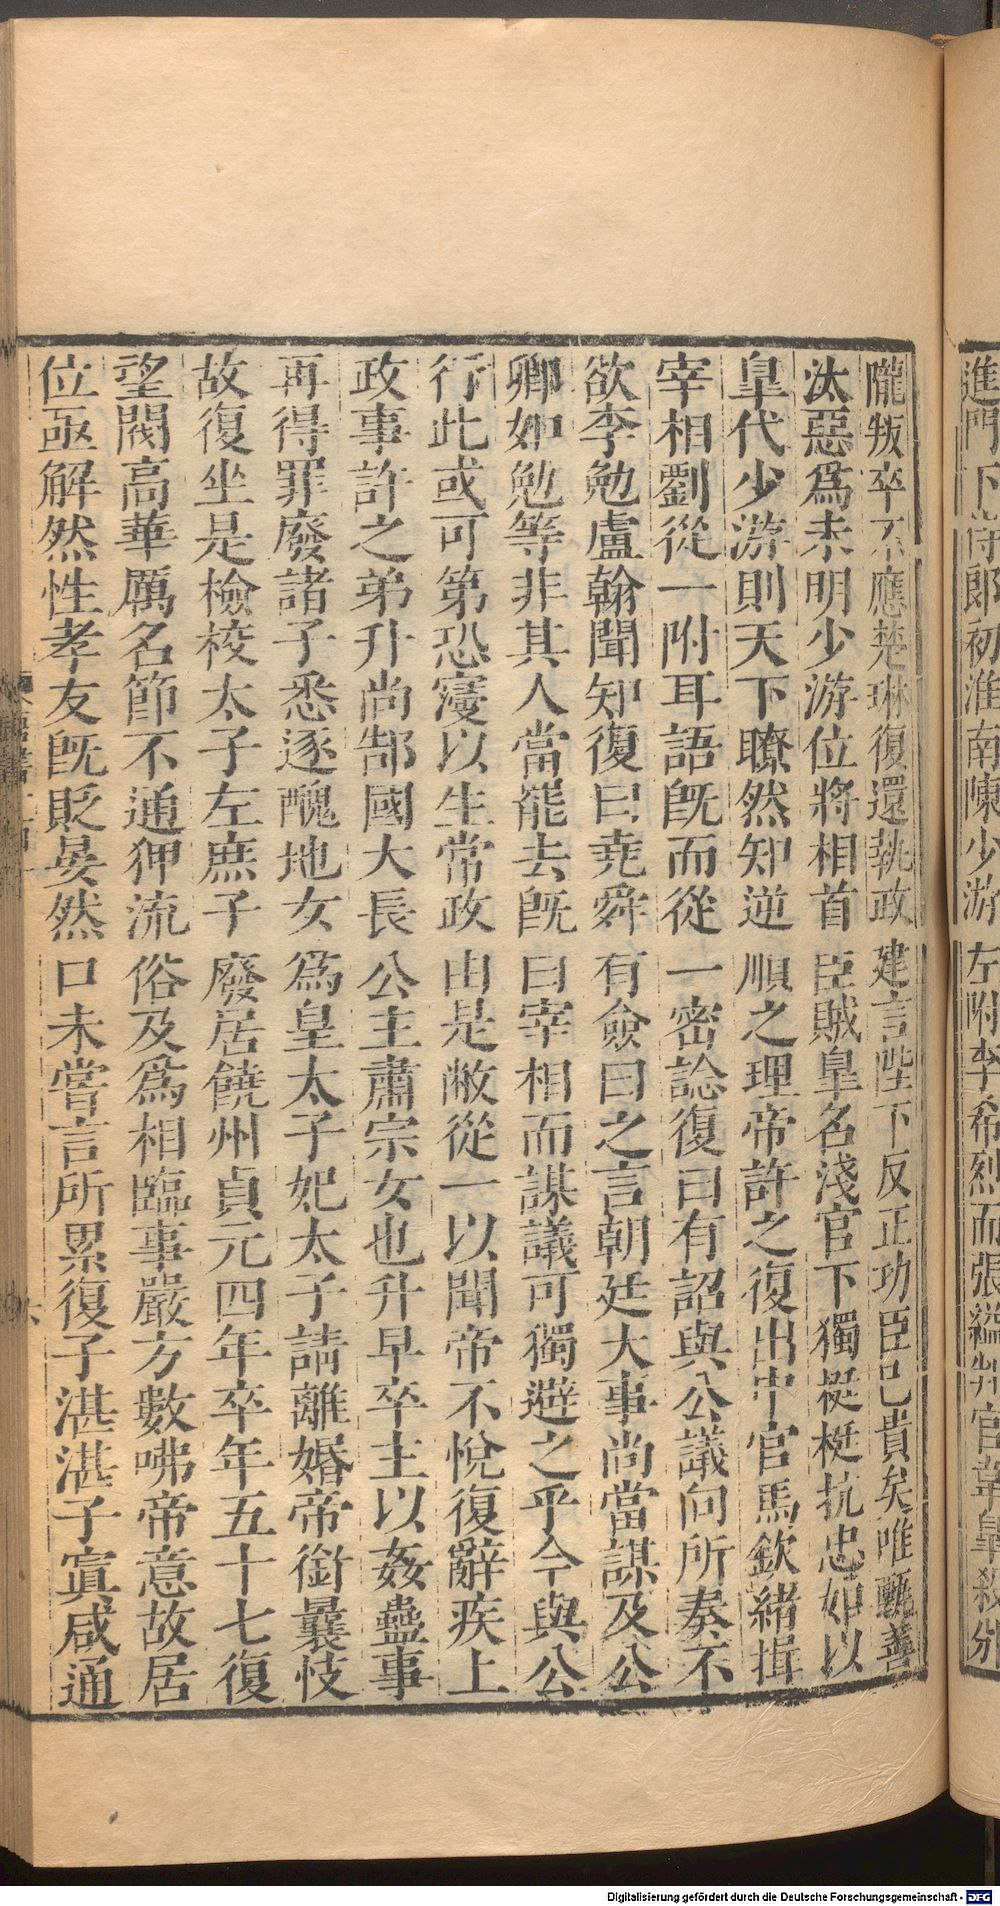 進門下侍郎初淮南陳少游左附李希烈而張縊判官韋皐殺

隴叛卒不應楚琳復還執政建言陛下反正功臣已貴矣唯甄善
汰惡爲未明少游位將相首臣賊皐名淺官下獨挺挺抗忠如以
皐代少游則天下瞭然知逆順之理帝許之復出中官馬欽緒揖
宰相劉從一附耳語旣而從一密諗復曰有詔與公議向所奏不
欲李勉盧翰聞知復曰堯舜有僉曰之言朝廷大事尚當謀及公
卿如勉等非其人當罷去旣曰宰相而謀議可獨避之乎今與公
行此或可第恐寖以生常政由是敝從一以聞帝不悅復辭疾上
政事許之弟升尚郜國大長公主肅宗女也升早卒主以姦蠱事
再得罪廢諸子悉逐醜地女爲皇太子妃太子請離婚帝銜曩忮
故復坐是檢校太子左庶子廢居饒州貞元四年卒年五十七復
望閥高華厲名節不通狎流俗及爲相臨事嚴方數咈帝意故居
位亟解然性孝友旣貶晏然口未嘗言所累復子湛湛子寘咸通
六
Digitalisierung gefördert durch die Deutsche Forschungsgemeinschaft - DFG